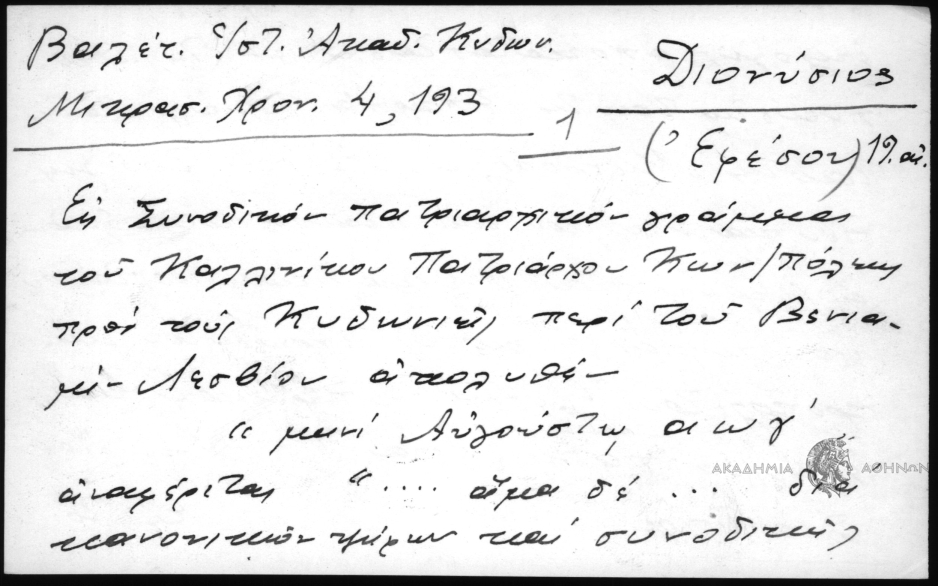 Βαλέτ. Ἱστ. Ἀκαδ. Κυδων.
Μικρασ. Χρον. 4, 193
1
Διονύσιος
(Ἐφέσου) 19. αἰ.
Εἰς Συνοδικόν πατριαρχικόν γράμμα
τοῦ Καλλινίκου Πατριάρχου Κων/πόλεως
πρός τούς Κυδωνιεῖς περί τοῦ Βενια-
μίν Λεσβίου ἀπολυθέν
"μηνί Αὐγούστῳ αωγ'
ἀναφέρεται ".... ἅμα δέ ... διά
κανονικῶν ψήφων καί συνοδικῆς
ΑΚΑΔΗΜΙΑ ΑΘΗΝΩΝ